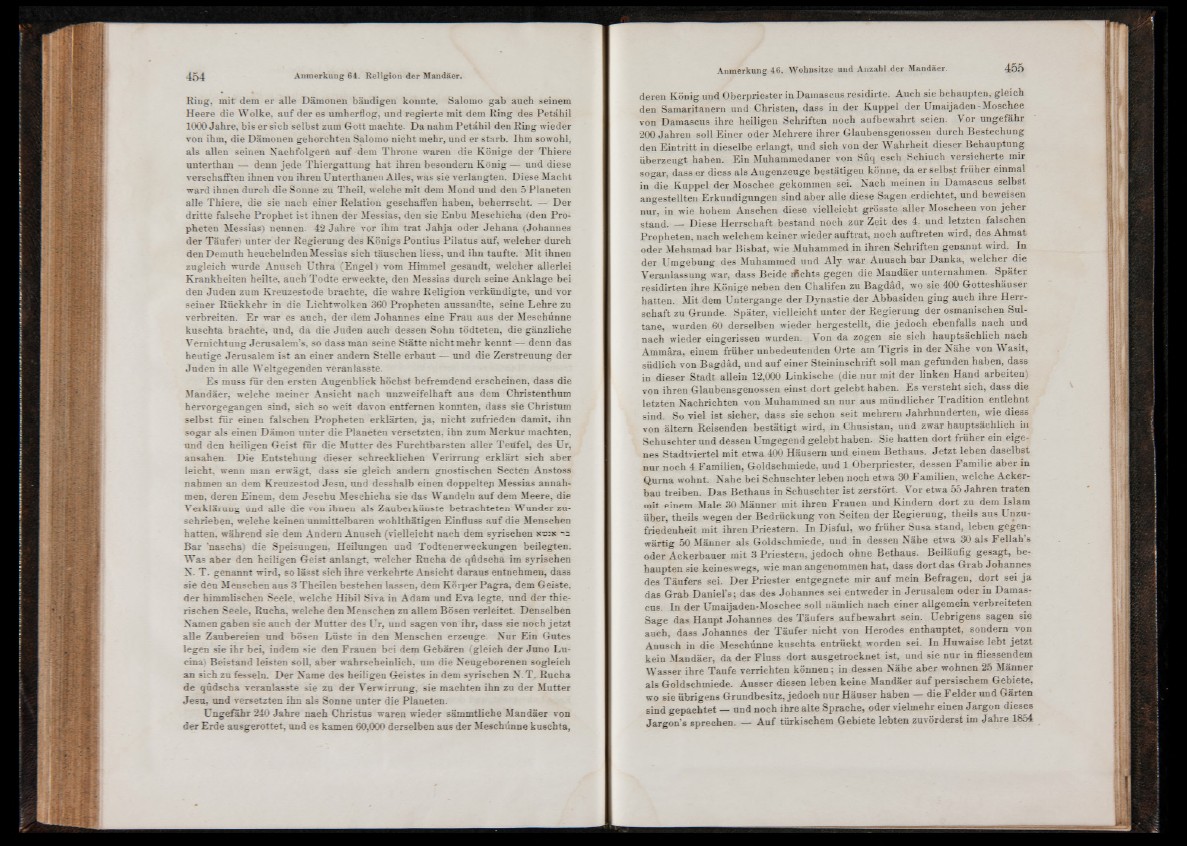 454 Anmerkung 64. Religion der Mandäer.
Ring, mit dem er alle Dämonen bändigen konnte. Salomo gab auch seinem
Heere die Wolke, auf der es umherflog, und regierte mit dem Ring des Petâhil
1000 Jahre, bis er sich selbst zum Gott machte. Da nahm Petâhil den Ring wieder
von ihm, die Dämonen gehorchten Salomo nicht mehr, und er starb. Ihm sowohl,
als allen seinen Nachfolgern auf dem Throne waren die Könige der Thiere
unterthan — denn jede Thiergattung hat ihren besondern König — und diese
verschafften ihnen von ihren Unterthanen Alles, was sie verlangten. Diese Macht
ward ihnen durch die Sonne zu Theil, welche mit dem Mond und den 5 Planeten
alle Thiere, die sie nach einer Relation geschaffen haben, beherrscht. — Der
dritte falsche Prophet ist ihnen der Messias, den sie Enbu Meschicha (den Pro-
pheten Messias) nennen. 42 Jahre vor ihm trat Jahja oder Jehana (Johannes
der Täufer) unter der Regierung des Königs Pontius Pilatus auf, welcher durch
den Demuth heuchelnden Messias sich täuschen liess, und ihn taufte. Mit ihnen
zugleich wurde Anusch Uthra (Engel) vom Himmel gesandt, welcher allerlei
Krankheiten heilte, auch Todte erweckte, den Messias durch seine Anklage bei
den Juden zum Kreuzestode brachte, die wahre Religion verkündigte, und vor
seiner Rückkehr in die Lichtwolken 360 Propheten aussandte, seine Lehre zu
verbreiten. Er war es auch, der dem Johannes eine Frau aus der Meschúnne
kuschta brachte, und, da die Juden auch dessen Sohn tödteten, die gänzliche
Vernichtung Jerusalem's, so dass man seine Stätte nicht mehr kennt — denn das
heutige Jerusalem ist an einer andern Stelle erbaut — und die Zerstreuung der
Juden in alle Weltgegenden veranlasste.
Es muss für den ersten Augenblick höchst befremdend erscheinen, dass die
Mandäer, welche meiner Ansicht nach unzweifelhaft aus dem Christenthum
hervorgegangen sind, sich so weit davon entfernen konnten, dass sie Christum
selbst für einen falschen Propheten erklärten, ja, nicht zufrieden damit, ihn
sogar als einen Dämon unter die Planeten versetzten, ihn zum Merkur machten,
und den heiligen Geist für die Mutter des Furchtbarsten aller Teufel, des Ur,
ansahen. Die Entstehung dieser schrecklichen Verirrung erklärt sich aber
leicht, wenn man erwägt, dass sie gleich andern gnostischen Secten Anstoss
nahmen an dem Kreuzestod Jesu, und desshalb einen doppelten Messias annah-
men, deren Einem, dem Jeschu Meschicha sie das Wandeln auf dem Meere, die
Verklärung und alle die von ihnen als Zauberkünste betrachteten Wunder zu-
schrieben, welche keinen unmittelbaren wohlthätigen Einfluss auf die Menschen
hatten, während sie dem Andern Anusch (vielleicht nach dem syrischen בר אנשא
Bar 'nascha) die Speisungen, Heilungen und Todtenerweckungen beilegten.
Was aber den heiligen Geist anlangt, welcher Rucha de qûdscha im syrischen
N. T. genannt wird, so lässt sich ihre verkehrte Ansicht daraus entnehmen, dass
sie den Menschen aus 3 Theilen bestehen lassen, dem Körper Pagra, dem Geiste,
der himmlischen Seele, welche Hibil Siva in Adam und Eva legte, und der thie-
rischen Seele, Rucha, welche den Menschen zu allem Bösen verleitet. Denselben
Namen gaben sie auch der Mutter des Ur, und sagen von ihr, dass sie noch jetzt
alle Zaubereien und bösen Lüste in den Menschen erzeuge. Nur Ein Gutes
legen sie ihr bei, indem sie den Frauen bei dem Gebären (gleich der Juno Lu-
cina) Beistand leisten soll, aber wahrscheinlich, um die Neugeborenen sogleich
an sich zu fesseln. Der Name des heiligen Geistes in dem syrischen N. T. Rucha
de qûdscha veranlasste sie zu der Verwirrung, sie machten ihn zu der Mutter
Jesu, und versetzten ihn als Sonne unter die Planeten.
Ungefähr 240 Jahre nach Christus waren wieder sämmtliche Mandäer von
der Erde ausgerottet, und es kamen 60,000 derselben aus der Meschúnne kuschta,
Anmerkung 46. Wohnsitze und Anzahl der Mandäer. 455
deren König und Oberpriester in Damascus residirte. Auch sie behaupten, gleich
den Samaritanern und Christen, dass in der Kuppel der Umaijaden-Moschee
von Damascus ihre heiligen Schriften noch aufbewahrt seien. Vor ungefähr
200 Jahren soll Einer oder Mehrere ihrer Glaubensgenossen durch Bestechung
den Eintritt in dieselbe erlangt, und sich von der Wahrheit dieser Behauptung
überzeugt haben. Ein Muhammedaner von Sûq esch Schiuch versicherte mir
sogar, dass er diess als Augenzeuge bestätigen könne, da er selbst früher einmal
in die Kuppel der Moschee gekommen sei. Nach meinen in Damascus selbst
angestellten Erkundigungen sind aber alle diese Sagen erdichtet, und beweisen
nur, in wie hohem Ansehen diese vielleicht grösste aller Moscheen von jeher
stand. — Diese Herrschaft bestand noch zur Zeit des 4. und letzten falschen
Propheten, nach welchem keiner wieder auftrat, noch auftreten wird, des Ahmat
oder Mehamad bar Bisbat, wie Muhammed in ihren Schriften genannt wird. In
der Umgebung des Muhammed und Aly war Anusch bar Danka, welcher die
Veranlassung war, dass Beide nichts gegen die Mandäer unternahmen. Später
residirten ihre Könige neben den Chalifen zu Bagdâd, wo sie 400 Gotteshäuser
hatten. Mit dem Untergange der Dynastie der Abbasiden ging auch ihre Herr-
schaft zu Grunde. Später, vielleicht unter der Regierung der osmanischen Sul-
tane, wurden 60 derselben wieder hergestellt, die jedoch ebenfalls nach und
nach wieder eingerissen wurden. Von da zogen sie sich hauptsächlich nach
Ammâra, einem früher unbedeutenden Orte am Tigris in der Nähe von Wasit,
südlich von Bagdâd, und auf einer Steininschrift soll man gefunden haben, dass
in dieser Stadt allein 12,000 Linkische (die nur mit der linken Hand arbeiten)
von ihren Glaubensgenossen einst dort gelebt haben. Es versteht sich, dass die
letzten Nachrichten von Muhammed an nur aus mündlicher Tradition entlehnt
sind. So viel ist sicher, dass sie schon seit mehrern Jahrhunderten, wie diess
von ältern Reisenden bestätigt wird, in Chusistan, und zwar hauptsächlich in
Schuschter und dessen Umgegend gelebt haben. Sie hatten dort früher ein eige-
nes Stadtviertel mit etwa 400 Häusern und einem Bethaus. Jetzt leben daselbst
nur noch 4 Familien, Goldschmiede, und 1 Oberpriester, dessen Familie aber in
Qurna wohnt. Nahe bei Schuschter leben noch etwa 30 Familien, welche Acker-
bau treiben. Das Bethaus in Schuschter ist zerstört. Vor etwa 55 Jahren traten
mit einem Male 30 Männer mit ihren Frauen und Kindern dort zu dem Islam
über, theils wegen der Bedrückung von Seiten der Regierung, theils aus Unzu-
friedenheit mit ihren Priestern. In Disful, wo früher Susa stand, leben gegen-
wärtig 50 Männer als Goldschmiede, und in dessen Nähe etwa 30 als Fellah's
oder Ackerbauer mit 3 Priestern, jedoch ohne Bethaus. Beiläufig gesagt, be-
haupten sie keineswegs, wie man angenommen hat, dass dort das Grab Johannes
des Täufers sei. Der Priester entgegnete mir auf mein Befragen, dort sei ja
das Grab Daniel's; das des Johannes sei entweder in Jerusalem oder in Damas-
cus. In der Umaijaden-Moschee soll nämlich nach einer allgemein verbreiteten
Sage das Haupt Johannes des Täufers aufbewahrt sein. Uebrigens sagen sie
auch, dass Johannes der Täufer nicht von Herodes enthauptet, sondern von
Anusch in die Meschúnne kuschta entrückt worden sei. In Huwaise lebt jetzt
kein Mandäer, da der Fluss dort ausgetrocknet ist, und sie nur in fliessendem
Wasser ihre Taufe verrichten können; in dessen Nähe aber wohnen 25 Männer
als Goldschmiede. Ausser diesen leben keine Mandäer auf persischem Gebiete,
wo sie übrigens Grundbesitz, jedoch nur Häuser haben — die Felder und Gärten
sind gepachtet — und noch ihre alte Sprache, oder vielmehr einen Jargon dieses
Jargon's sprechen. — Auf türkischem Gebiete lebten zuvörderst im Jahre 1854